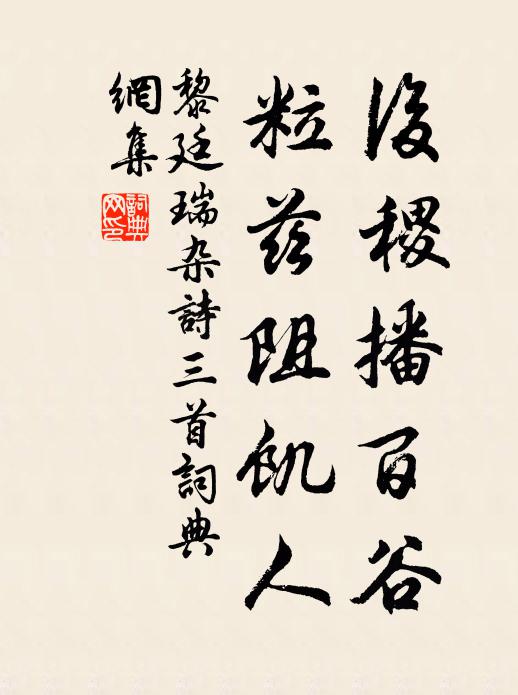 後稷播百谷
粒茲阻飢人
黎廷瑞杂詩三首詞典
網集
詞典
网印